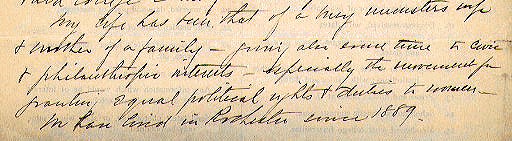 My life has been that of a busy ministers wife
& mother of a family – giving also some time to civic
& philanthropic interests – especially the movement for
granting equal political rights & duties to women –
We have lived in Rochester since 1889.